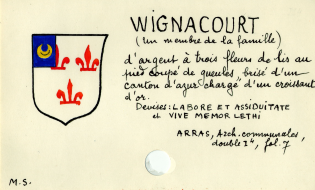 WIGNACOURT
(Un membre de la famille)
d'argent à trois fleurs de lis au
pied coupé de gueules, brisé d'un
canton d'azur chargé d'un croissant
d'or.
Devises: LABORE ET ASSIDUITATE
et VIVE MEMOR LETHI
ARRAS, Arch. communales,
double I", fol. 7
M-S.